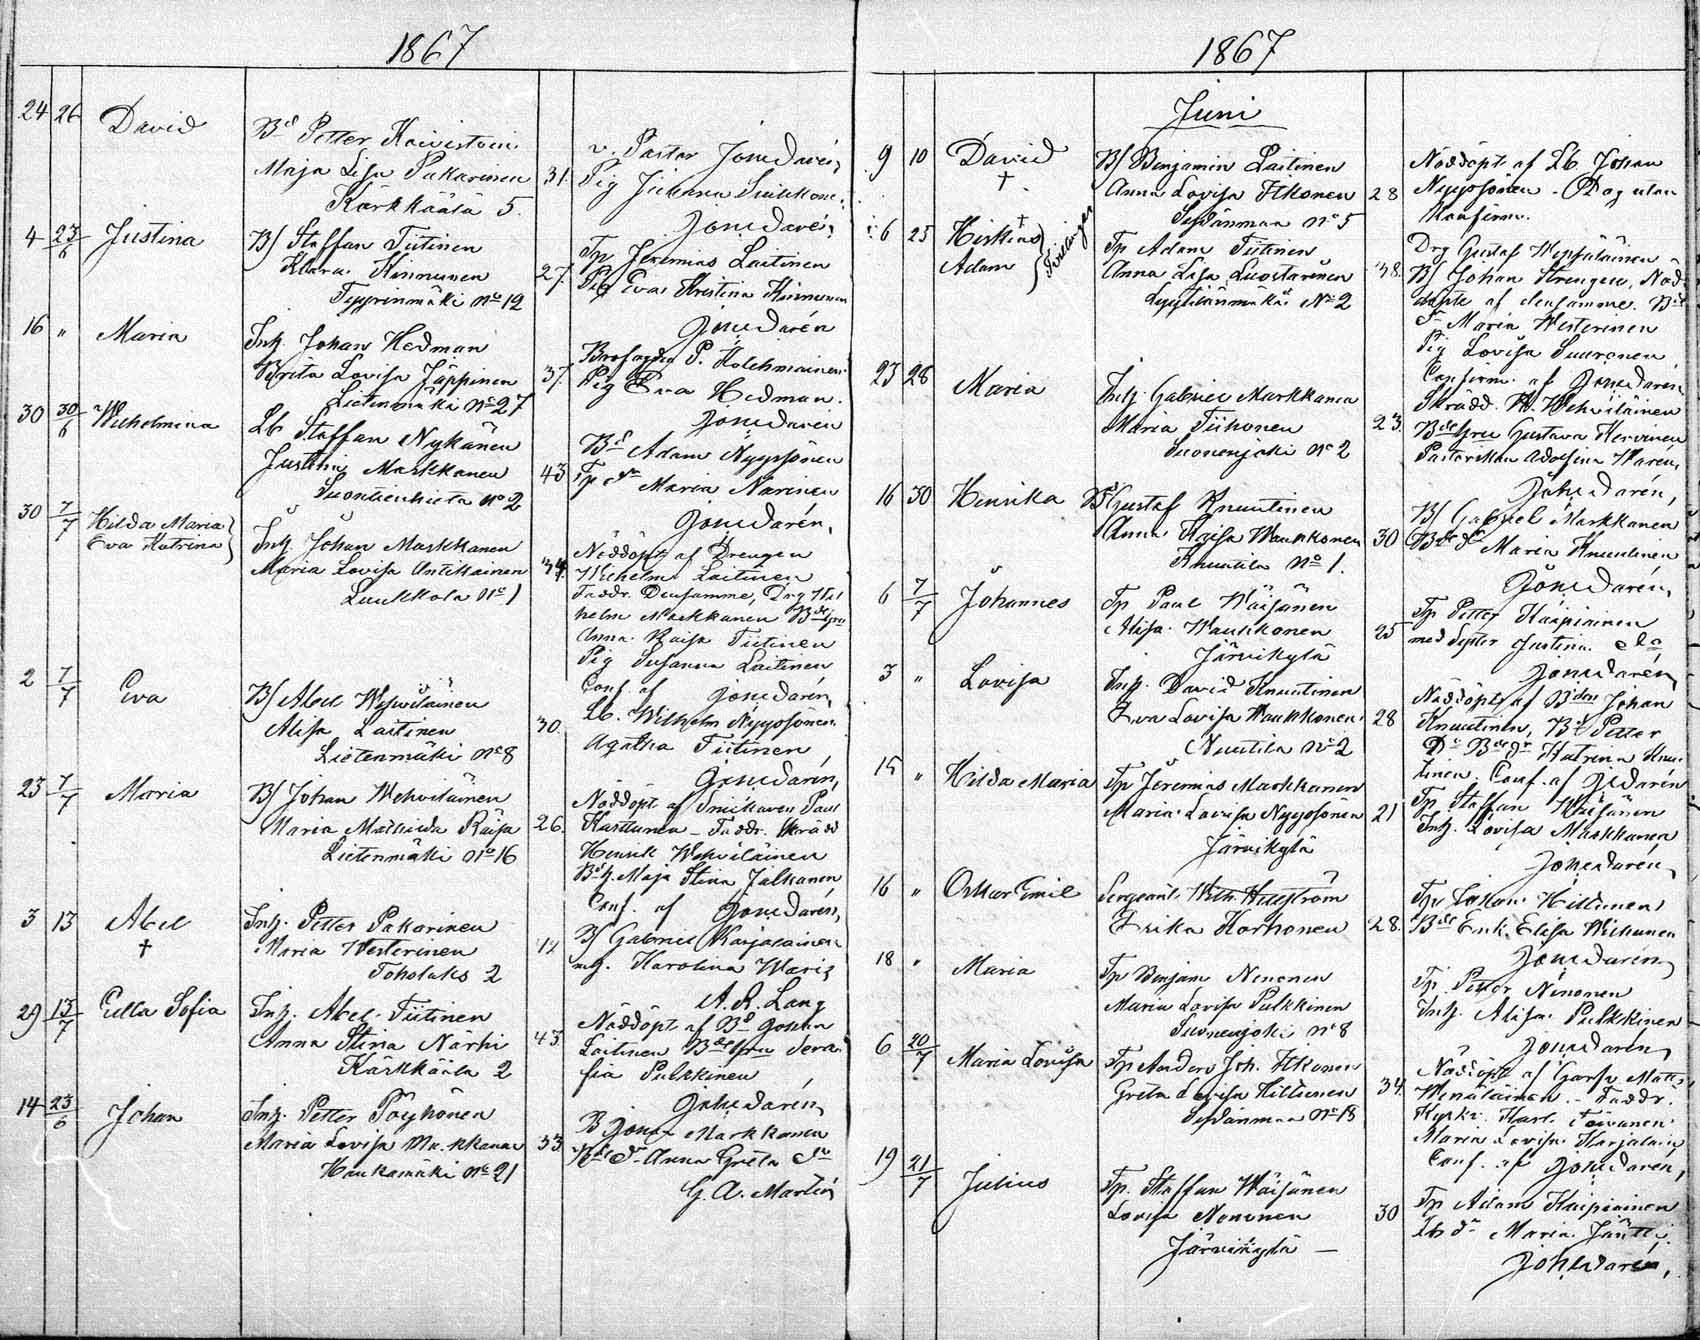 1867
24 26 David
Bd Petter Koivistoin
Maja Lisa Pakarinen 31.
Kärkkäälä 5.
v. Pastor Joh. Warén,
Pig Johana Sinkkone
Joh. Warén,
4 23/6 Justina
B/ Staffan Tiitinen
Klara Kinnunen 27.
Tyyrinmäki No 12
Tp Jeremias Laitinen
Pig Eva Kristina Kinnunen
Joh. Warén
16 " Maria
Inh. Johan Hedman
Brita Lovisa Jäppinen 37.
Lietenmäki No 27
P. Kolehmainen
Pig Eva Hedman.
Joh. Warén
30 30/6 Wilhelmina
Lb Staffan Nykänen
Justiin Markkanen 43
Suontienkieta No 2
Bd Adam Nyyssönen
Tp dr Maria Narinen
Joh. Warén,
30 7/7 Hilda Maria
Eva Katrina
Inh. Johan Markkanen
Maria Lovisa Antikainen 34.
Luukkola No 1
Nöddöpt af Drengen
Wilhelm Laitinen
Faddr. Densamme, Drg Wil
helm Markkanen Bdehru
Anna Kaisa Tiitinen
Pig Susanna Laitinen
Conf. af Joh. Warén,
2 7/7 Eva
B/ Abel Wehviläinen
Alisa Laitinen 30.
Lietenmäki No 8
Lb. Wilhelm Nyyssönen
Agatha Tiitinen
Joh. Warén,
23 7/7 Maria
B/ Johan Wehviläinen
Maria Mathilda Räisä 26.
Lietenmäki No 16
Nöddöpt af Snickaren Paul
Karttunen - Faddr. Skrädd
Henrik Wehviläinen
Bdh. Maja Stina Jalkanen
Conf. af Joh. Warén,
3 13 Abel
†
Inh. Petter Pakarinen
Maria Westerinen
Toholaks 2
B/ Gabriel Karjalainen
mh. Karolina Waris
A. R. Lang
29 13/7 Ulla Sofia
Inh. Abel Tiitinen
Anna Stina Närhi 43.
Kärkkäälä 2
Nöddöpt af Bd Johan
Laitinen Bdehru Sera-
fia Pulkkinen
Joh. Warén,
14 23/6 Johan
Inh. Petter Pöyhönen
Maria Lovisa Markkanen 33.
Haukamäki No 21
B Johan Markkanen
Bde dr Anna Greta do
G. A. Martin
1867
Juni
9 10 David
†
B/ Benjamin Laitinen
Anna Lovisa Itkonen 28
Sydänmaa No 5
Nöddöpt af Lb Johan
Nyyssönen - Dag utan
Konfirm.
6 25 Hiskias †
Adam } Tvillingar
Tp Adam Tiitinen
Anna Lisa Luostarinen 38.
Lyytilänmäki No 2
Drg Gustaf Weijaläinen
B/ Johan Strengell, Nöd-
döpte af densamme. Bde
dr Maria Westerinen
Pig Lovisa Suuronen
Confirm. af Joh. Warén
23 28 Maria
Inh. Gabriel Markkanen
Maria Tiihonen 23.
Suonenjoki No 2
Skrädd. W. Wehviläinen
Bdehru Gustava Kervinen
Pastorskan Adolfina Warén,
Joh. Warén,
16 30 Henrika
Bd Gustaf Knuutinen
Anna Kaisa Waukkonen 30
Knuutila No 1.
B/ Gabriel Markkanen
Bde dr Maria Knuutinen
Joh. Warén,
6 7/7 Johannes
Tp Paul Wäisänen
Alisa Waukkonen 25
Järvikylä
Tp Petter Kaipiainen
med syster Justina
Joh. Warén,
3 " Lovisa
Inh. David Knuutinen
Eva Lovisa Waukkonen 28
Knuutila No 2
Nöddöpt af Bden Johan
Knuutinen, Bd Petter
Do Bde dr Katrina Knuu-
tinen. Conf. af Joh. Warén
15 " Hilda Maria
Tp Jeremias Markkanen
Maria Lovisa Nyyssönen 21
Järvikylä
Tp Staffan Wäisänen
Inh. Lovisa Markkanen
Joh. Warén,
16 " Oskar Emil
Sergeant Wilh. Hellström
Erika Korhonen 28.
Hiltunen
Bde Enk. Elisa Wihunen
Joh. Warén,
18 " Maria
Tp Benjam Nenonen
Maria Lovisa Pulkkinen
Suonenjoki No 8
Tp Petter Ninonen
Inh. Alisa Pulkkinen
Joh. Warén,
6 20/7 Maria Lovisa
Tp Anders Joh. Itkonen
Greta Lovisa Hiltunen 34.
Sydänmaa No 18
Nöddöpt af Garfv. Matts
Wenäläinen - Faddr.
Kyrkv. Karl Toivanen
Maria Lovisa Karjalain
Conf. af Joh. Warén,
19 21/7 Julius
Tp. Staffan Wäisänen
Lovisa Nenonen 30
Järvikylä -
Tp Adam Kaipiainen
Lb dr Maria Jäntti
Joh. Warén,